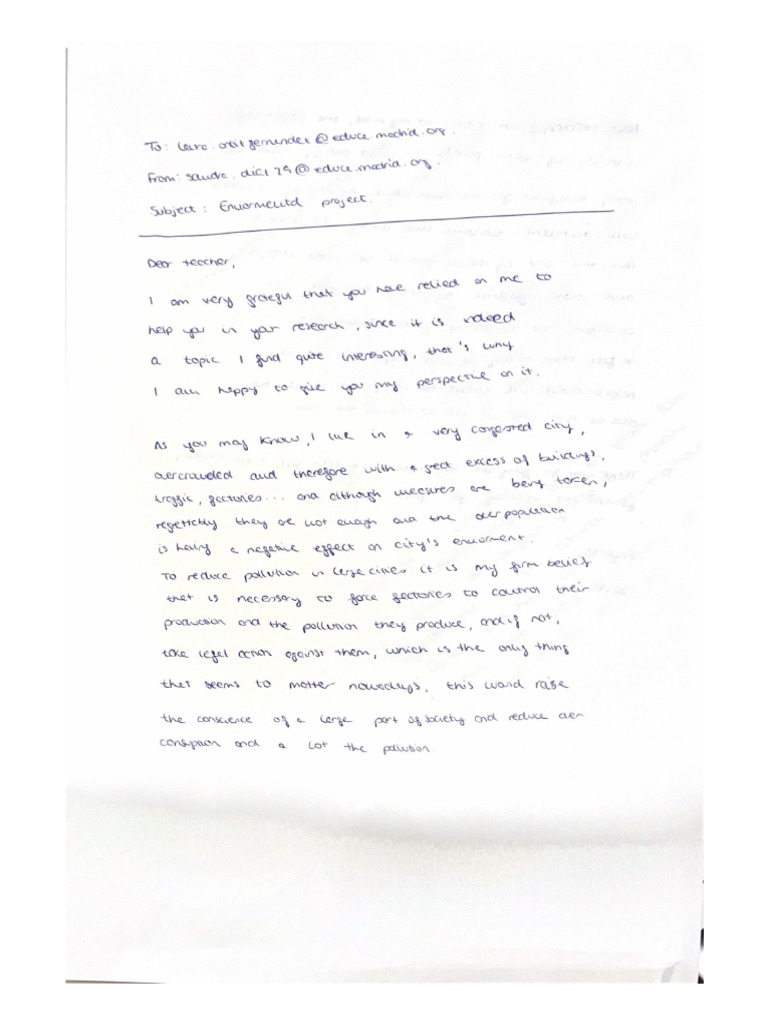 To: @educa.madrid.org.
From: @educa.madrid.org.
Subject: project.
Dear teacher,
I am very grateful that you have relied on me to
help you in your research, since it is indeed
a topic I find quite interesting, that's why
I am happy to give you my perspective on it.
As you may know, I live in a very congested city,
overcrowded and therefore with a great excess of buildings,
traffic, factories... and although measures are being taken,
they are not enough and the overpopulation
is having a negative effect on city's enviorment.
To reduce pollution in large cities it is my firm belief
that is necessary to force factories to control their
production and the pollution they produce, and if not,
take legal action against them, which is the only thing
that seems to matter nowadays, this would raise
the conscience of a large part of society and reduce
and a lot the pollution.